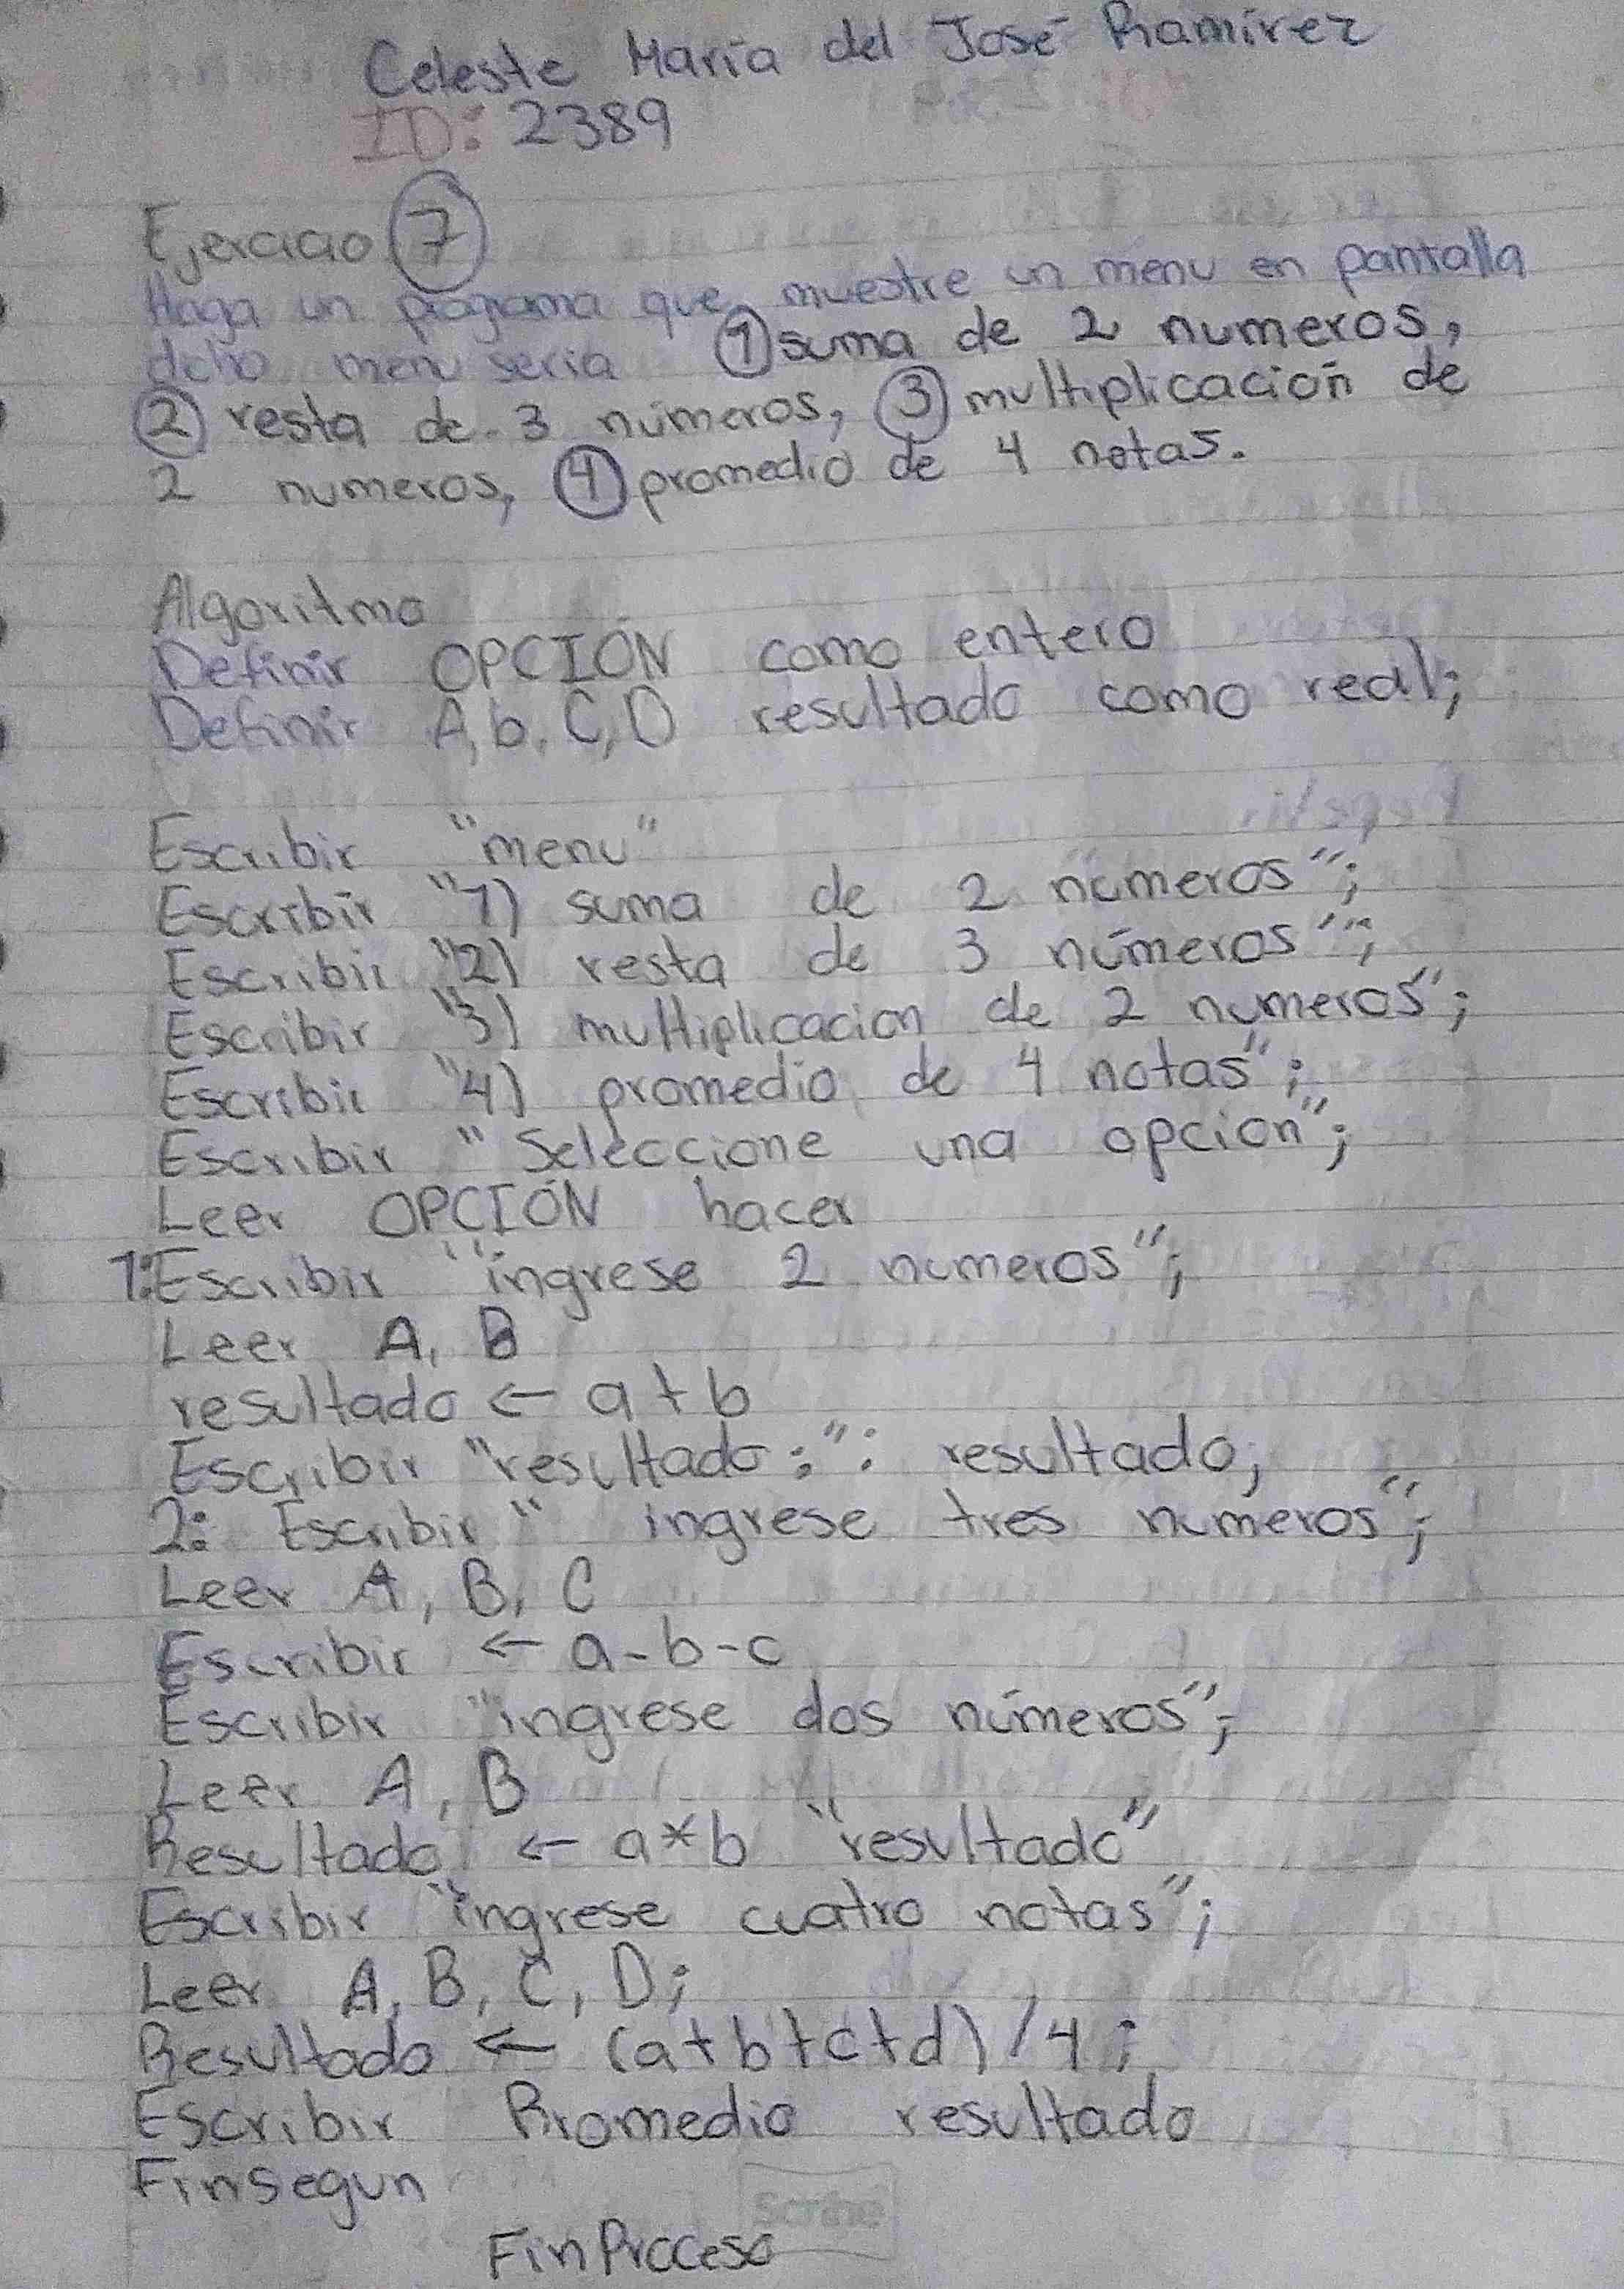 Celeste María del José Ramírez
ID: 2389
Ejercicio 7
Haga un programa que muestre un menu en pantalla
dicho menu seria 1 suma de 2 numeros,
2 resta de 3 números, 3 multiplicación de
2 numeros, 4 promedio de 4 notas.
Algoritmo
Definir OPCIÓN como entero
Definir A, b, C, D resultado como real;
Escribir "menu"
Escribir "1) suma de 2 números";
Escribir "2) resta de 3 números";
Escribir "3) multiplicacion de 2 numeros";
Escribir "4) promedio de 4 notas";
Escribir "Seleccione una opcion";
Leer OPCIÓN hacer
1: Escribir "ingrese 2 numeros";
Leer A, B
resultado ← a+b
Escribir "resultado:": resultado;
2: Escribir "ingrese tres numeros";
Leer A, B, C
Escribir ← a-b-c
Escribir "ingrese dos números";
Leer A, B
Resultado ← a*b "resultado"
Escribir "ingrese cuatro notas";
Leer A, B, C, D;
Resultado ← (a+b+c+d)/4;
Escribir Promedio resultado
FinSegun
Scribe
FinProceso